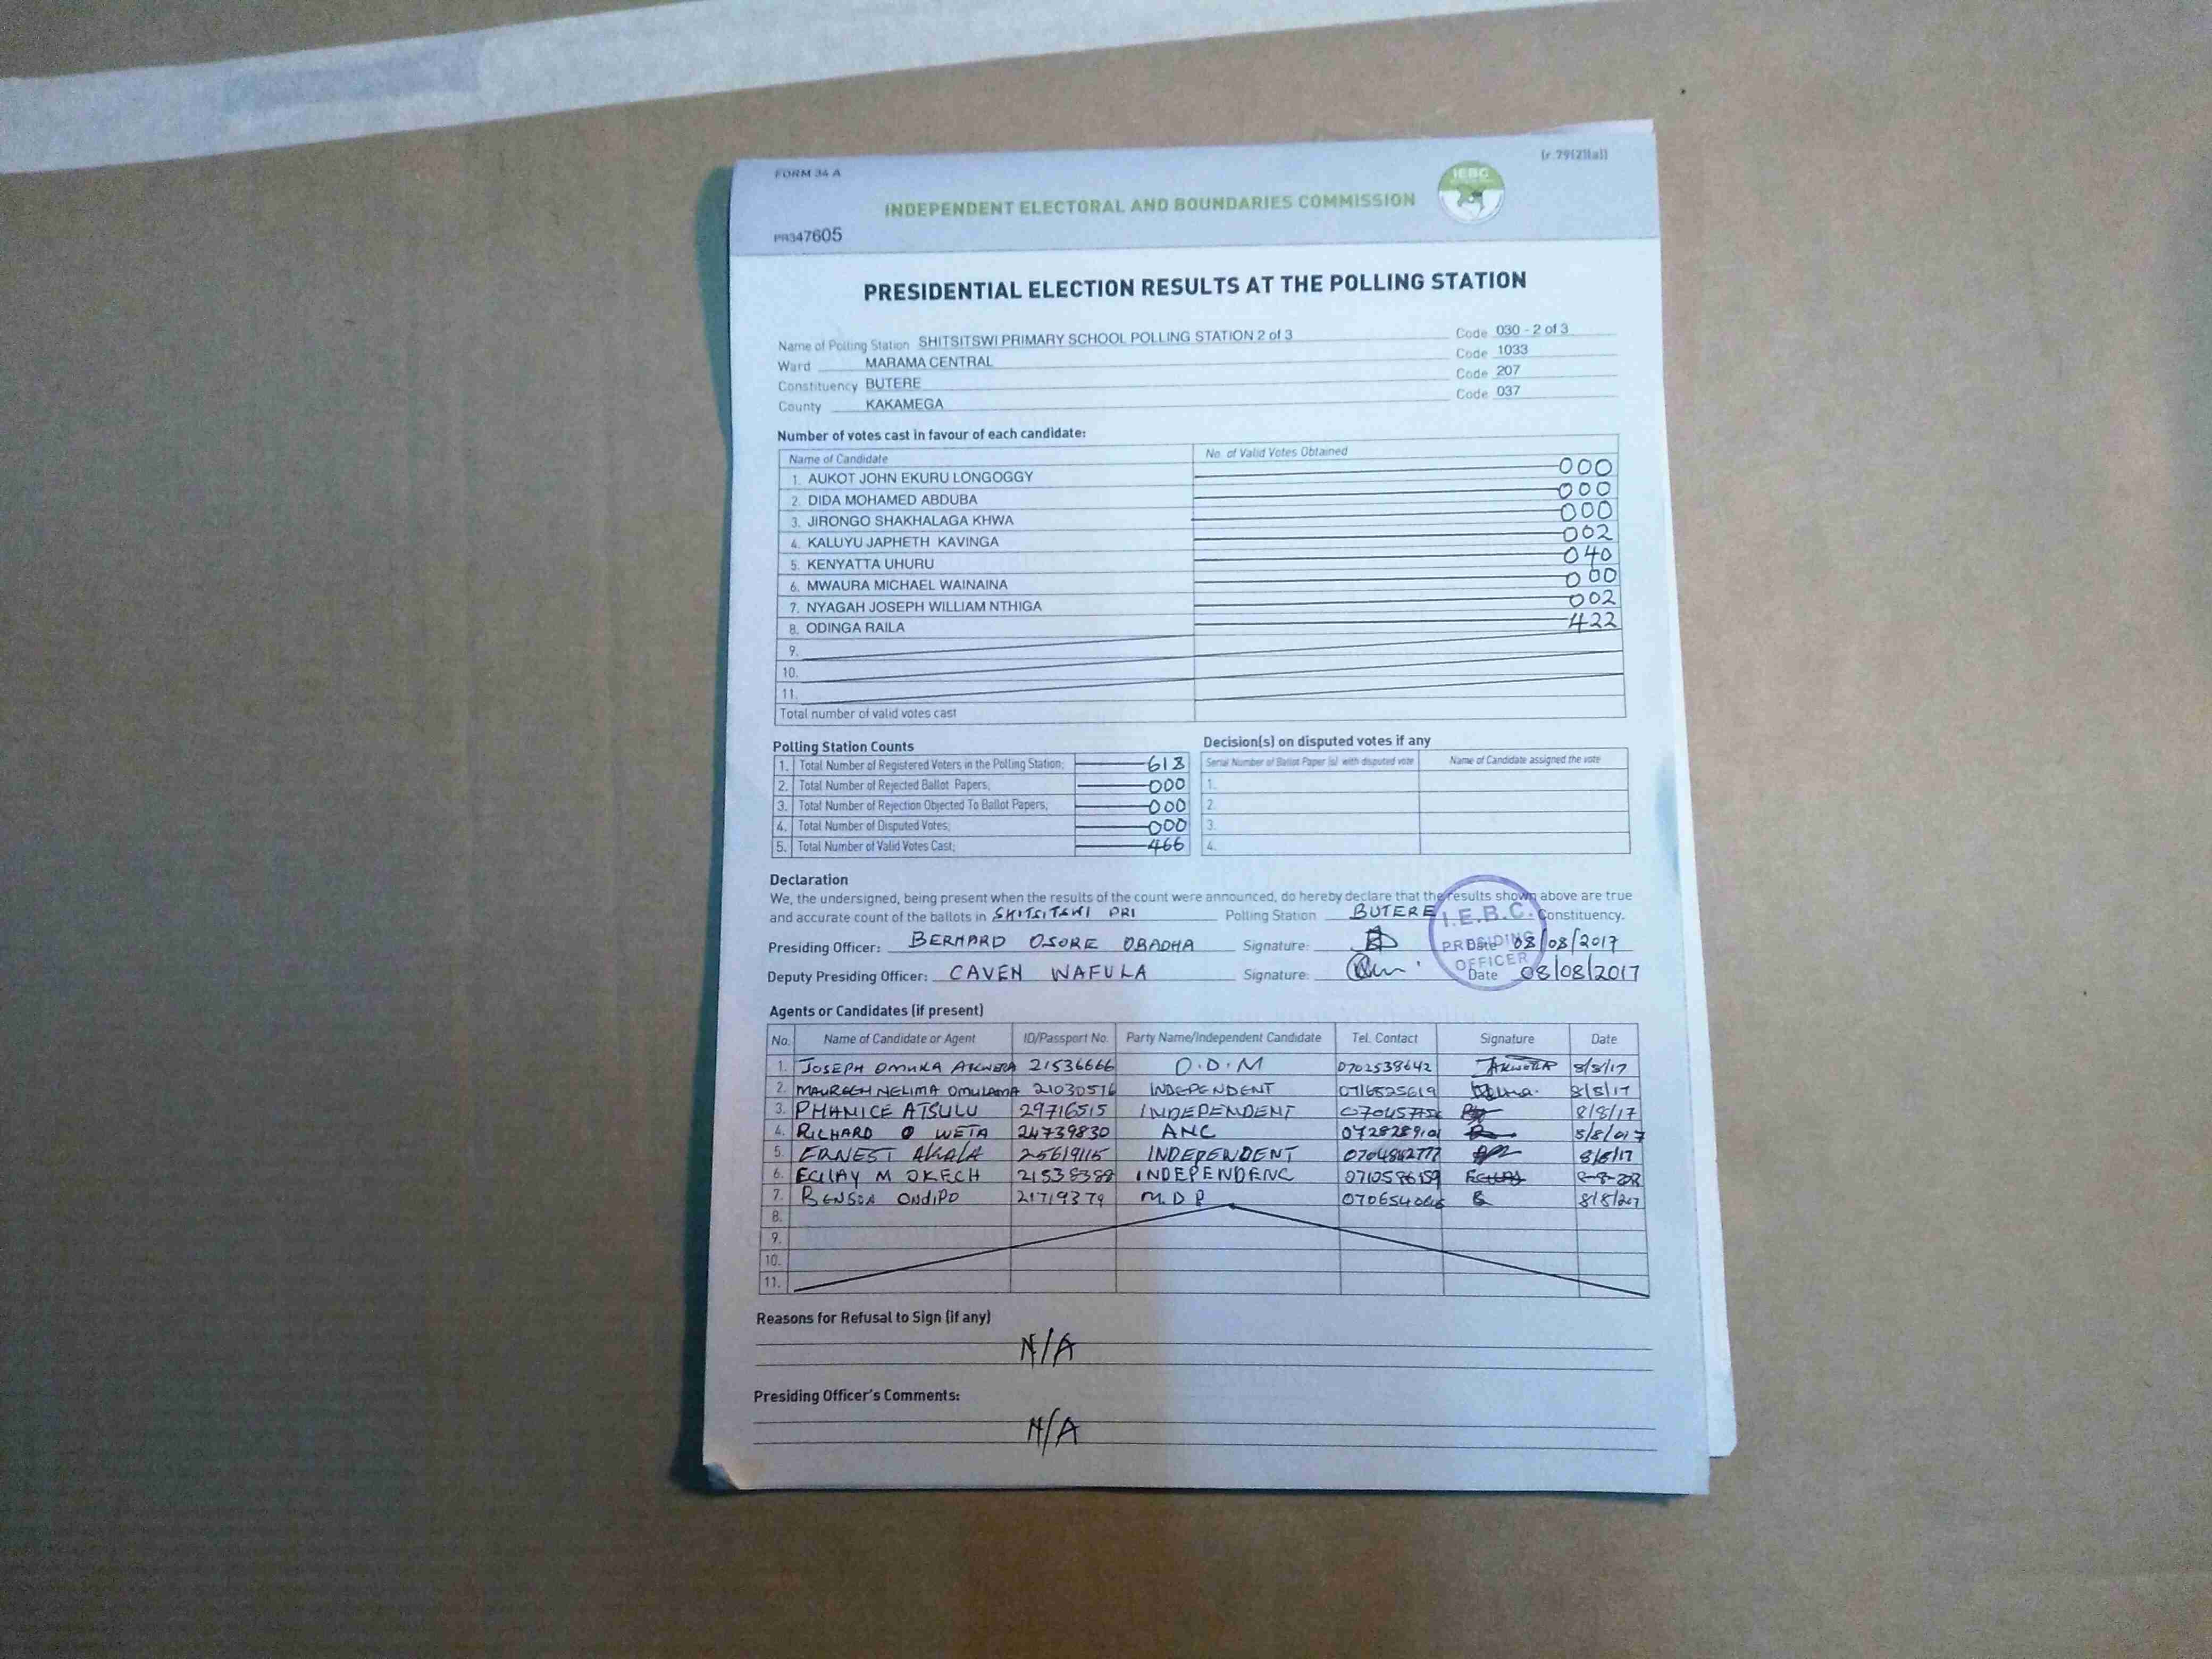 FORM 34 A
(r.79(2)(a))
IEBC
INDEPENDENT ELECTORAL AND BOUNDARIES COMMISSION
PR347605
PRESIDENTIAL ELECTION RESULTS AT THE POLLING STATION
Name of Polling Station SHITSITSWI PRIMARY SCHOOL POLLING STATION 2 of 3 Code 030 - 2 of 3
Ward MARAMA CENTRAL Code 1033
Constituency BUTERE Code 207
County KAKAMEGA Code 037
Number of votes cast in favour of each candidate:
Name of Candidate No. of Valid Votes Obtained
1. AUKOT JOHN EKURU LONGOGGY 000
2. DIDA MOHAMED ABDUBA 000
3. JIRONGO SHAKHALAGA KHWA 000
4. KALUYU JAPHETH KAVINGA 002
5. KENYATTA UHURU 040
6. MWAURA MICHAEL WAINAINA 000
7. NYAGAH JOSEPH WILLIAM NTHIGA 002
8. ODINGA RAILA 422
9.
10.
11.
Total number of valid votes cast
Polling Station Counts
1. Total Number of Registered Voters in the Polling Station; 618
2. Total Number of Rejected Ballot Papers; 000
3. Total Number of Rejection Objected To Ballot Papers; 000
4. Total Number of Disputed Votes; 000
5. Total Number of Valid Votes Cast; 466
Decision(s) on disputed votes if any
Serial Number of Ballot Paper (s) with disputed vote Name of Candidate assigned the vote
1.
2.
3.
4.
Declaration
We, the undersigned, being present when the results of the count were announced, do hereby declare that the results shown above are true
and accurate count of the ballots in SHITSITSWI PRI Polling Station BUTERE Constituency.
I.E.B.C.
PRESIDING
OFFICER
Presiding Officer: BERNARD OSORE OBADHA Signature: Date 08/08/2017
Deputy Presiding Officer: CAVEN WAFULA Signature: Date 08/08/2017
Agents or Candidates (if present)
No. Name of Candidate or Agent ID/Passport No. Party Name/Independent Candidate Tel. Contact Signature Date
1. JOSEPH OMUKA AKWERA 21536666 O.D.M 0702538642 8/8/17
2. MAUREEN NELIMA OMULAMA 21030576 INDEPENDENT 0716525619 8/8/17
3. PHANICE ATSULU 29716515 INDEPENDENT 8/8/17
4. RICHARD O WETA 24739830 ANC 0728289101
5. ERNEST AKALA 25619115 INDEPENDENT 0704842777 8/8/17
6. M OKECH 21538388 INDEPENDENC 0710586159
7. ONDIPO 21719379 M.D.P
8.
9.
10.
11.
Reasons for Refusal to Sign (if any)
N/A
Presiding Officer's Comments:
N/A